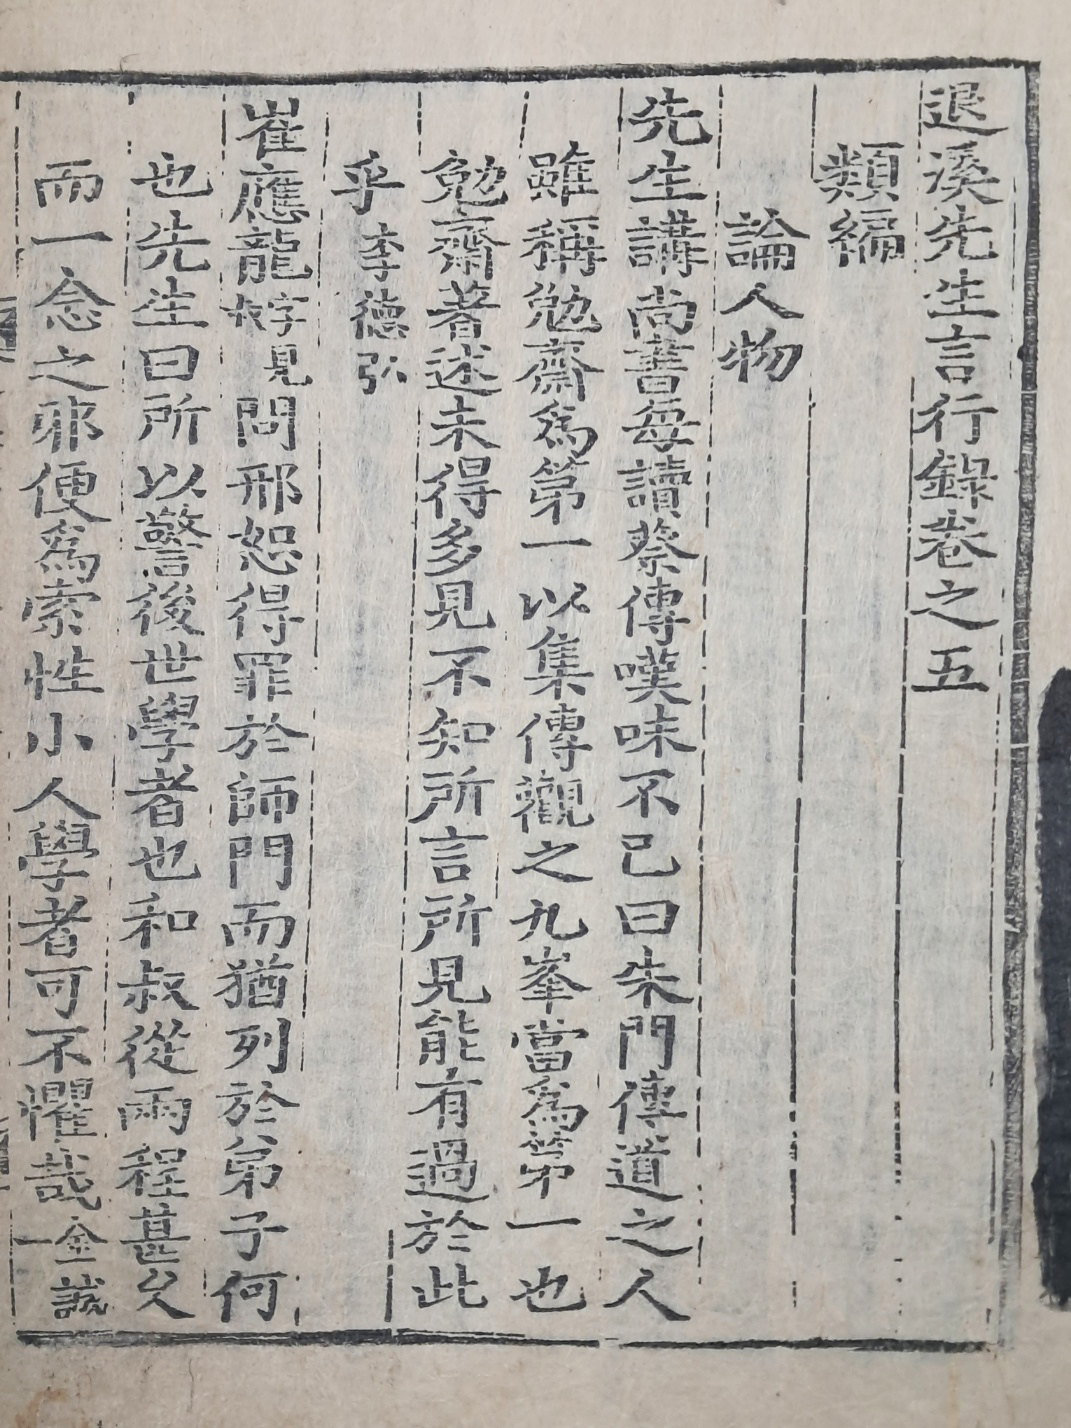 退溪先生言行錄卷之五
類編
論人物
先生講尚書每讀蔡傳嘆味不已曰朱門傳道之人
雖稱勉齋爲第一以集傳觀之九峯當爲第一也
勉齋著述未得多見不知所言所見能有過於此
乎李德弘
崔應龍字見叔問邢恕得罪於師門而猶列於弟子何
也先生曰所以警後世學者也和叔從兩程甚久
而一念之邪便爲索性小人學者可不懼哉金誠一